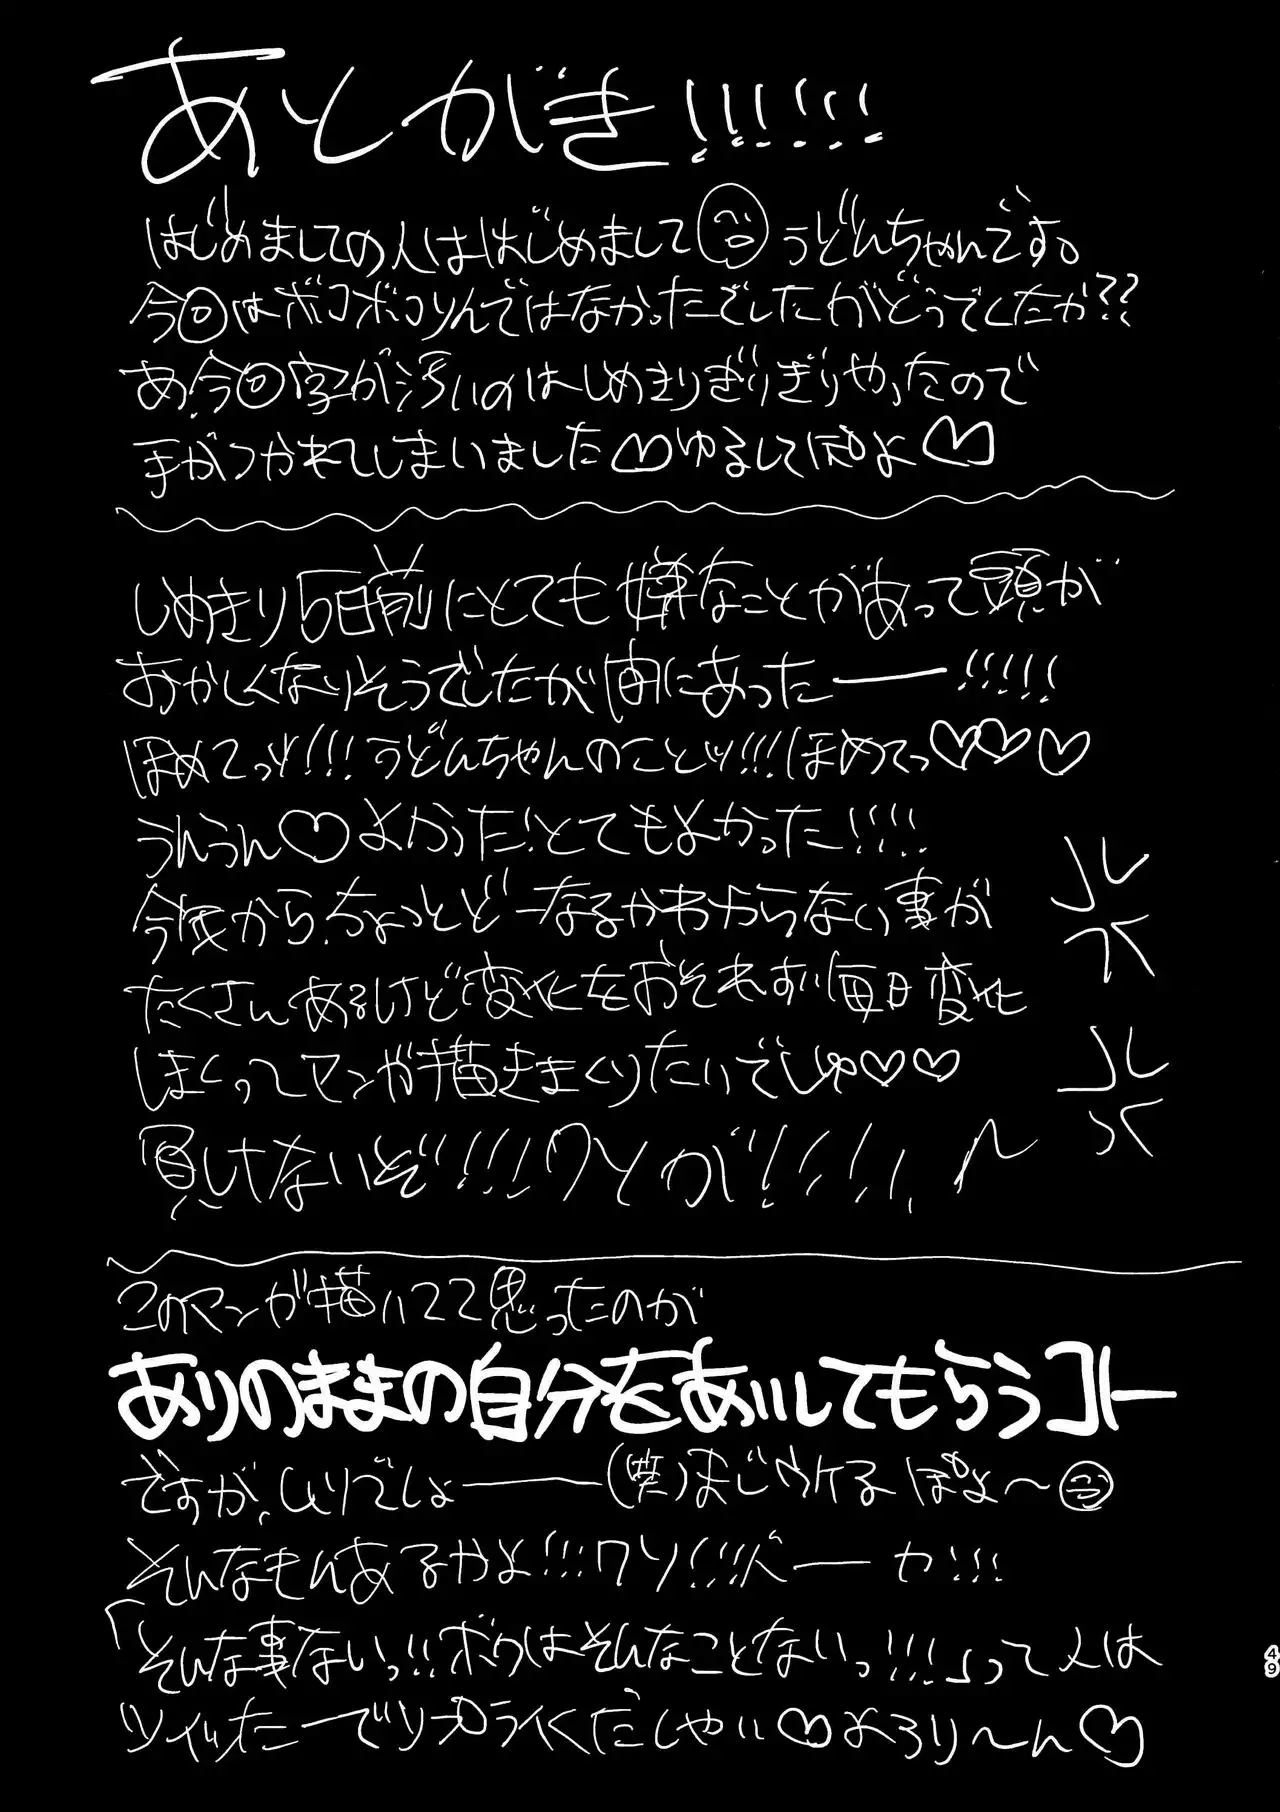 あとがき!!!!!!
はじめましての人ははじめまして うどんちゃんです。
今回はボコボコりんではなかったでしたがどうでしたか??
あ、今回字が汚いのはしめきりぎりぎりやったので
手がつかれてしまいました♡ゆるしてぽよ♡
しめきり5日前にとても嫌なことがあって頭が
おかしくなりそうでしたが間にあったー!!!!!
ほめてッ!!!うどんちゃんのことッ!!!ほめてっ♡♡♡
うんうん♡よかった!とてもよかった!!!!
今後から、ちょっとどーなるかわからない事が
たくさんあるけど変化をおそれず毎日変化
しまくってマンガ描きまくりたいでしゅ♡♡
負けないぞ!!!!クソが!!!!!
このマンガ描いてて思ったのが
ありのままの自分をあいしてもらうコト
ですが、ムリでしょー(笑)まじウケるぽよ〜
そんなもんあるかよ!!!クソ!!!バーカ!!!
「そんな事ないっ!!ボクはそんなことないっ!!!」って人は
ツイッターでリプライくだしゃい♡よろり〜ん♡
49